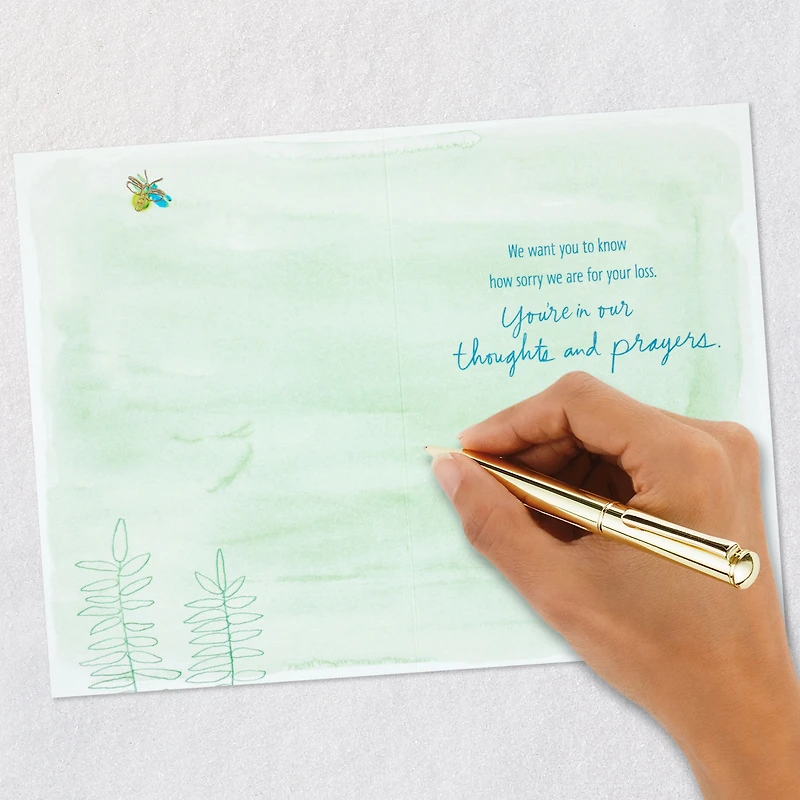 We want you to know
how sorry we are for your loss.
You're in our
thoughts and prayers.